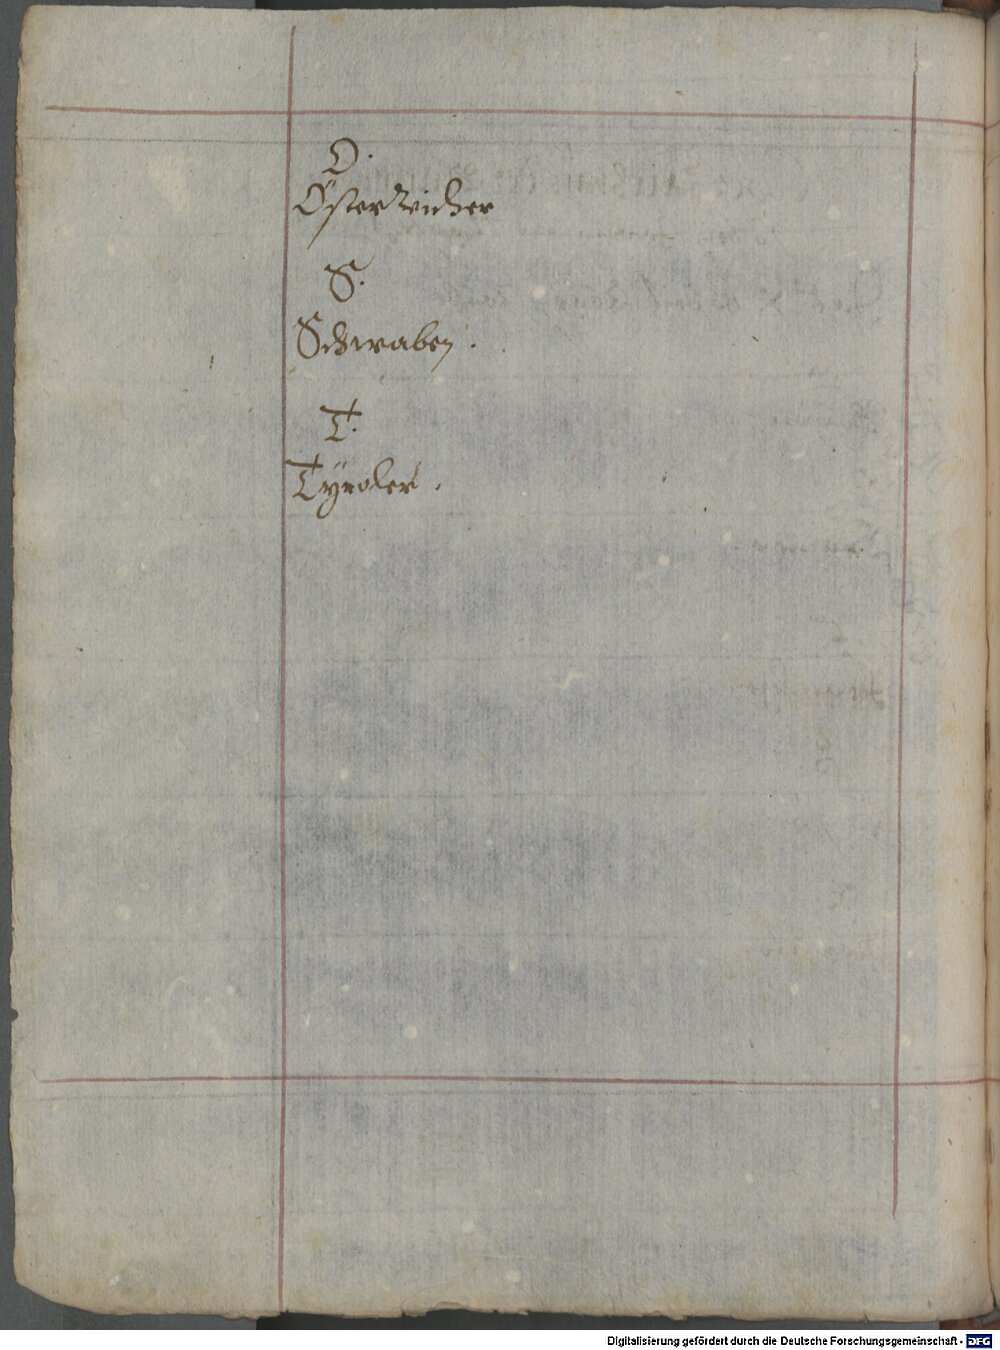 O.
ÖsterReicher
S.
Schwaben.
T.
Tÿroler.
Digitalisierung gefördert durch die Deutsche Forschungsgemeinschaft - DFG